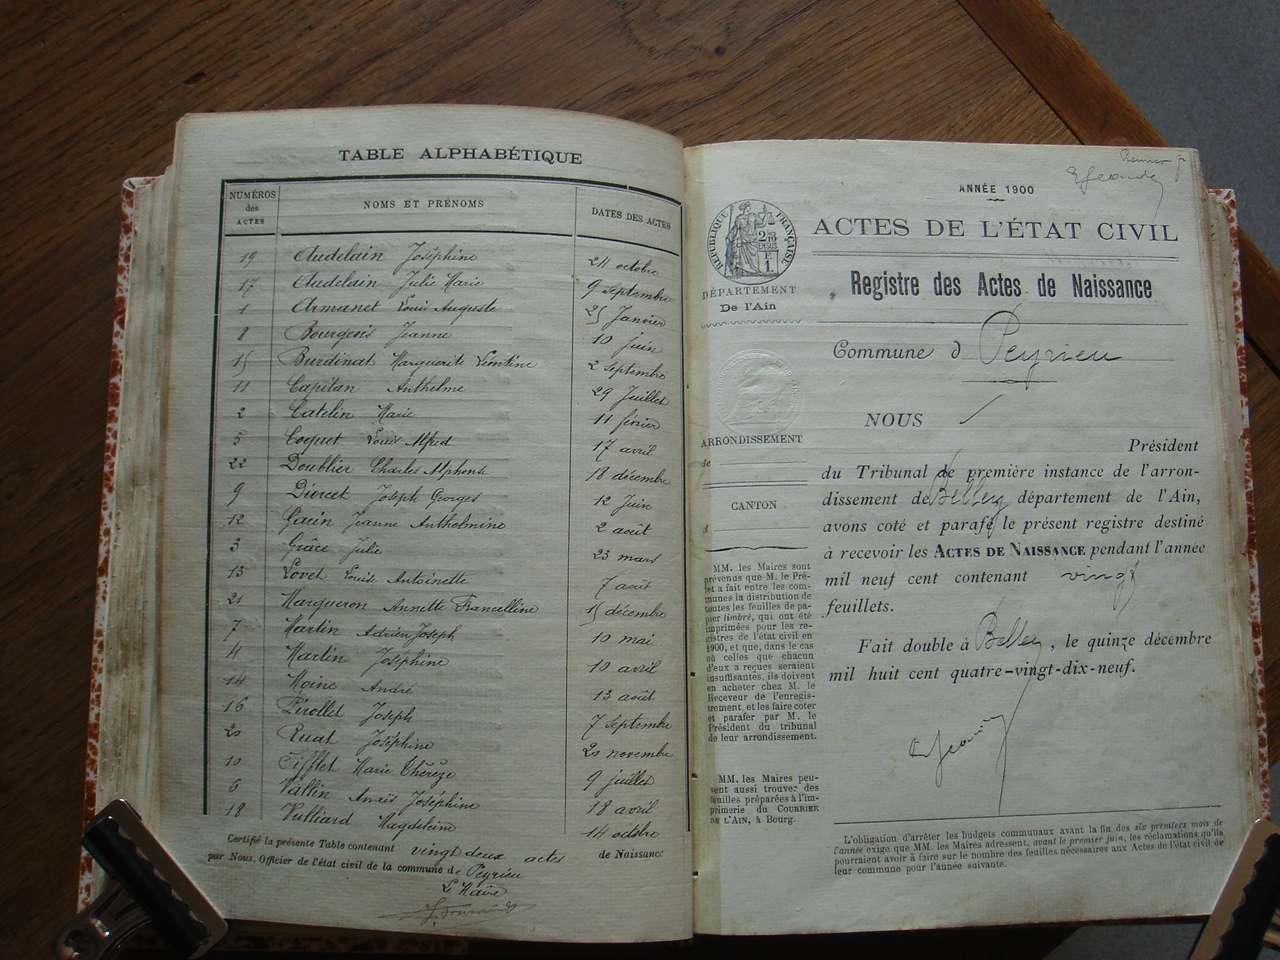 TABLE ALPHABÉTIQUE
NUMÉROS des ACTES NOMS ET PRÉNOMS DATES DES ACTES
19 Audelain Joséphine 24 octobre
17 Audelain Julie Marie 9 septembre
1 Armanet Louis Auguste 25 Janvier
8 Bourgeois Jeanne 10 juin
15 Burdinat Marguerite Léontine 2 septembre
11 Capitan Anthelme 29 Juillet
2 Catelin Marie 11 février
5 Coquet Louis Alfred 17 avril
22 Doublier Charles Alphonse 18 décembre
9 Diorcet Joseph Georges 12 Juin
12 Garin Jeanne Anthelmine 2 août
3 Grâce Julie 23 mars
13 Lovet Louise Antoinette 7 août
21 Margueron Annette Francelline 15 décembre
7 Martin Adrien Joseph 10 mai
4 Martin Joséphine 10 avril
14 Moine André 13 août
16 Pirollet Joseph 7 septembre
20 Ruat Joséphine 20 novembre
10 Tifflet Marie Thérèze 9 juillet
6 Vallin Anaïs Joséphine 18 avril
18 Vulliard Magdeleine 14 octobre
Certifié la présente Table contenant vingt deux actes de Naissance
par Nous, Officier de l'état civil de la commune de Peyrieu
Le Maire
Premier
ANNÉE 1900
RÉPUBLIQUE FRANÇAISE
ACTES DE L'ÉTAT CIVIL
DÉPARTEMENT
De l'Ain
Registre des Actes de Naissance
Commune d Peyrieu
ARRONDISSEMENT
de
CANTON
d
MM. les Maires sont
prévenus que M. le Pré-
fet a fait entre les com-
munes la distribution de
toutes les feuilles de pa-
pier timbré, qui ont été
imprimées pour les re-
gistres de l'état civil en
1900, et que, dans le cas
où celles que chacun
d'eux a reçues seraient
insuffisantes, ils doivent
en acheter chez M. le
Receveur de l'enregis-
trement, et les faire coter
et parafer par M. le
Président du tribunal
de leur arrondissement.
MM. les Maires peu-
vent aussi trouver des
feuilles préparées à l'im-
primerie du COURRIER
DE L'AIN, à Bourg.
NOUS
Président
du Tribunal de première instance de l'arron-
dissement de Belley département de l'Ain,
avons coté et parafé le présent registre destiné
à recevoir les ACTES DE NAISSANCE pendant l'année
mil neuf cent contenant vingt
feuillets.
Fait double à Belley, le quinze décembre
mil huit cent quatre-vingt-dix-neuf.
L'obligation d'arrêter les budgets communaux avant la fin des six premiers mois de
l'année exige que MM. les Maires adressent, avant le premier juin, les réclamations qu'ils
pourraient avoir à faire sur le nombre des feuilles nécessaires aux Actes de l'état civil de
leur commune pour l'année suivante.